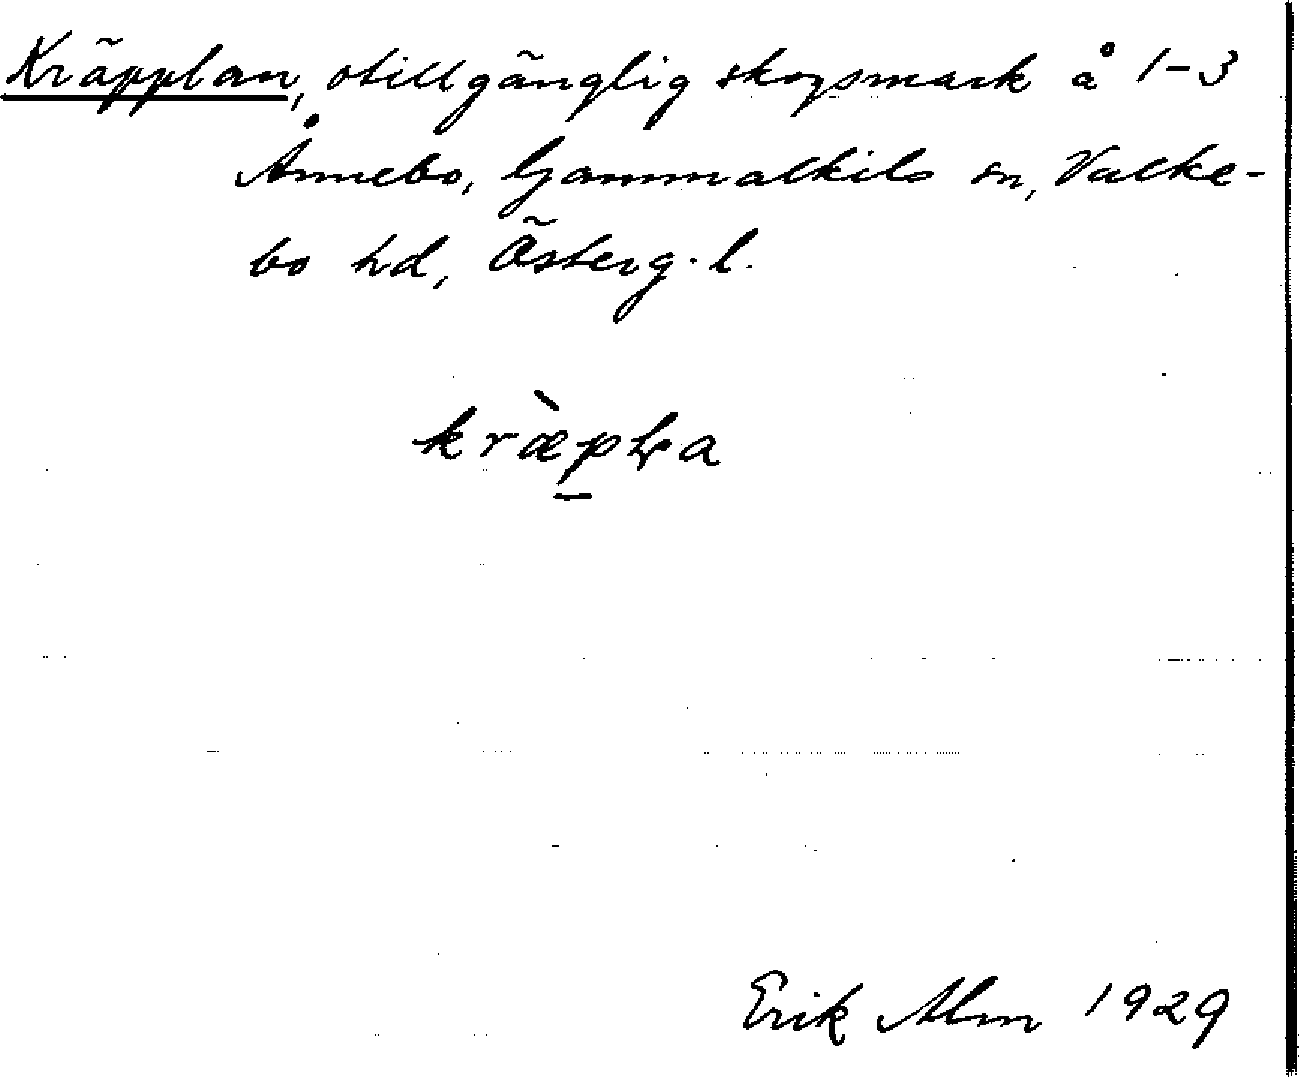 Kräpplan, otillgänglig skogsmark å 1-3
Ånnebo, Gammalkils sn, Valke-
bo hd, Österg. l.
kræ̀p̲ła
Erik Alm 1929